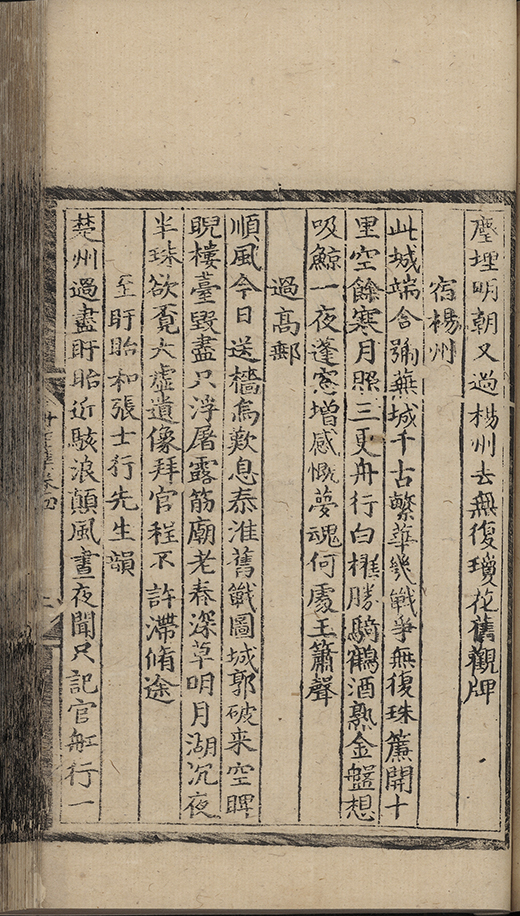 塵埋明朝又過楊州去無復瓊花舊觀牌
宿楊州
此城端合號蕪城千古繁華幾戰爭無復珠簾開十
里空餘寒月照三更舟行白櫂勝騎鶴酒熟金盤想
吸鯨一夜蓬窓增感慨夢魂何處玉簫聲
過高郵
順風今日送檣烏歎息秦淮舊戰圖城郭破来空睥
睨樓臺毀盡只浮屠露筋廟老春深草明月湖沉夜
半珠欲覓大虛遺像拜官程不許滯脩途
至盱眙和張士行先生韻
楚州過盡盱眙近駭浪顛風晝夜聞只記官舡行一
集卷四